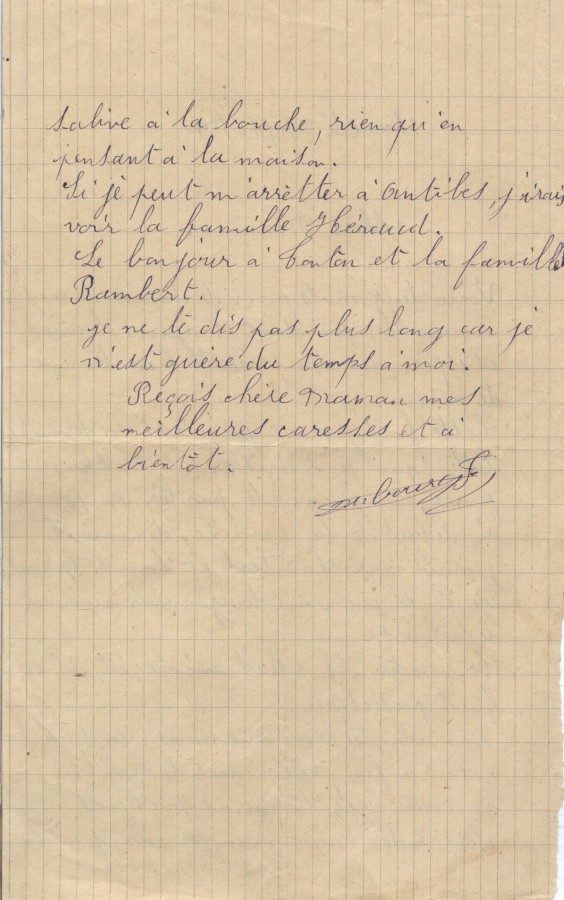 salive à la bouche, rien qu'en
pensant à la maison.
Si jè peut m'arrètter à Antibes, j'irais
voir la famille Héraud.
Le bonjour à Tonton et la famille
Rambert.
je ne te dis pas plus long car je
n'est guère du temps à moi.
Reçois chère Maman mes
meilleures caresses et à
bientôt.